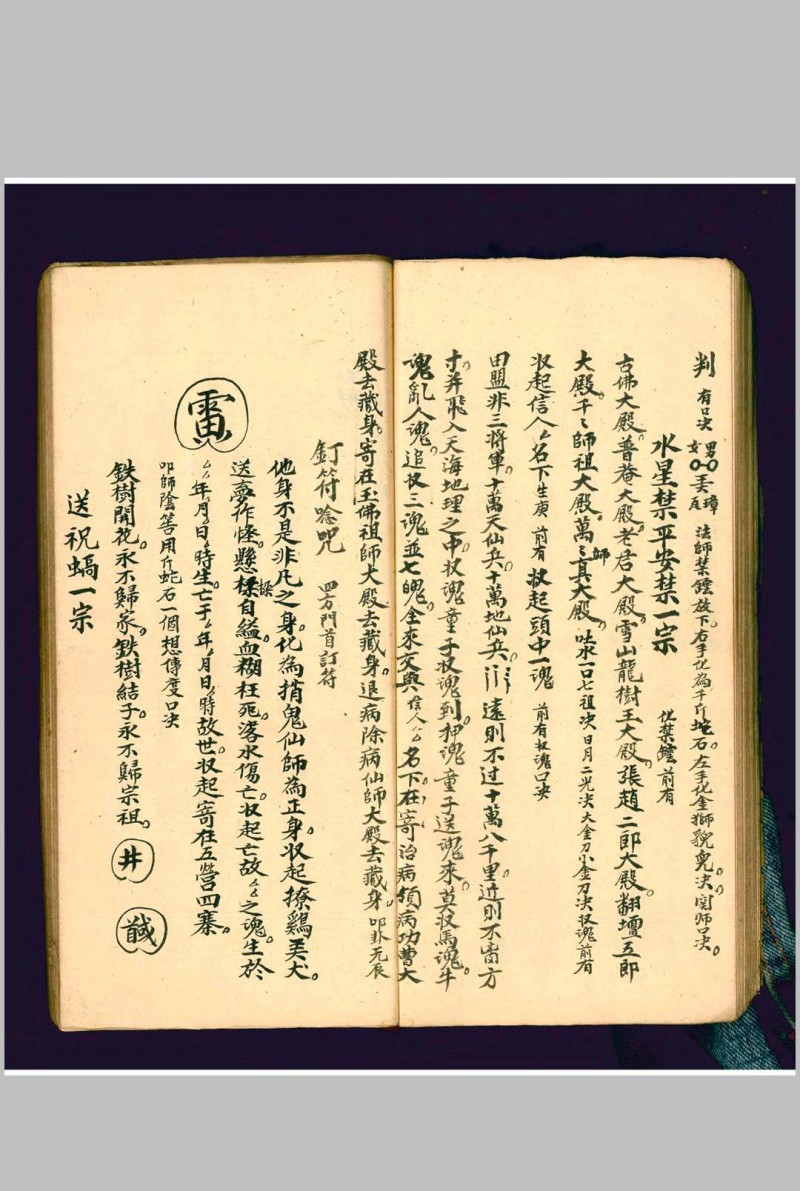 判 有口决 男 女 法師禁鏹放下。右手化為千斤坨石。左手化金獅猊
水星禁平安禁一宗 化禁鏹前有
古佛大殿。普奄大殿。老君大殿。雪山龍樹王大殿。張趙二郎大殿。翻壇五郎
大殿。千〻師祖大殿。萬〻師真大殿。吐水一口七祖决日月二光决大金刀小金刀决收魂前有
收起信人厶名下生庚 前有 收起頭中一魂 前有收魂口决
田盟非三將軍。十萬天仙兵。十萬地仙兵。遠則不过十萬八千里。近則不啻方
寸。并飛入天海地理之中。收魂童子收魂到。押魂童子送魂來。莫收馬魂。牛
魂。亂人魂。追收三魂並七魄。全來交與信人厶厶名下。在寄治病領病功曹大
殿去藏身。寄在玉佛祖師大殿去藏身。退病除病仙師大殿去藏身。叩卦无辰
釘符唸咒 四方門首訂符
他身不是非凡之身。化為捎鬼仙師為正身。收起撩鷄弄犬。
送夢作怪。懸樑自縊。血糊枉死。落水傷亡。收起亡故厶厶之魂。生於
厶厶年厶月厶日厶時生。亡于厶年厶月厶日厶時故世。收起寄在五營四寨。
叩師陰筶用斤蛇石一個想傳度口决
鉄樹開花。永不歸家。鉄樹結子。永不歸宗祖。井
送祝蝸一宗